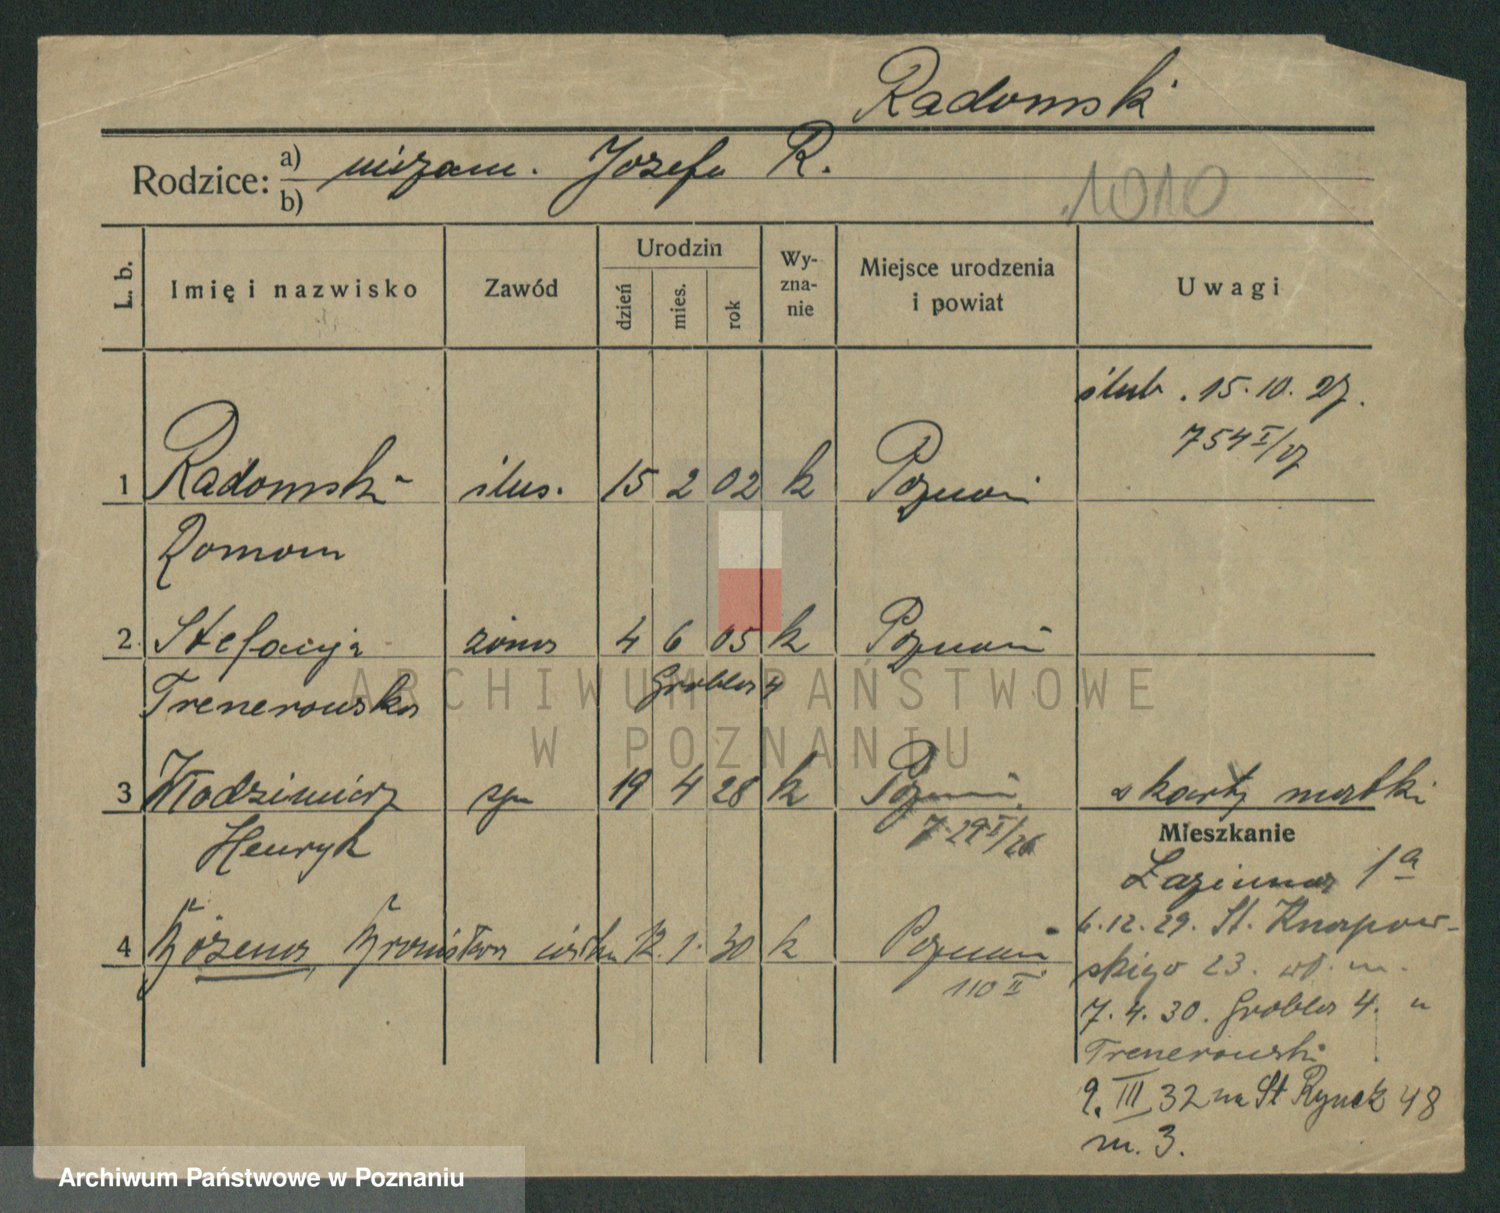 Radomski
Rodzice: a) niezam. Józefa R.
b)
1010
L. b. Imię i nazwisko Zawód Urodzin dzień mies. rok Wy-zna-nie Miejsce urodzenia i powiat Uwagi
ślub. 15.10.27.
754 I/27
1 Radomski ślus. 15 2 02 k Poznań
Roman
2. Stefanja żona 4 6 05 k Poznań
Trenerowska Grobla 4
3 Włodzimierz syn 19 4 28 k Poznań z karty matki
Henryk 729 I/28
Mieszkanie
Łazienna 1a
4 Bożena Bronisława córka 12. 1. 30 k Poznań
110 II
6.12.29. St. Knapow-
skiego 23. wł. m.
7.4.30. Grobla 4. u
Trenerowski
9. III 32 na St Rynek 48
m. 3.
ARCHIWUM PAŃSTWOWE
W POZNANIU
Archiwum Państwowe w Poznaniu